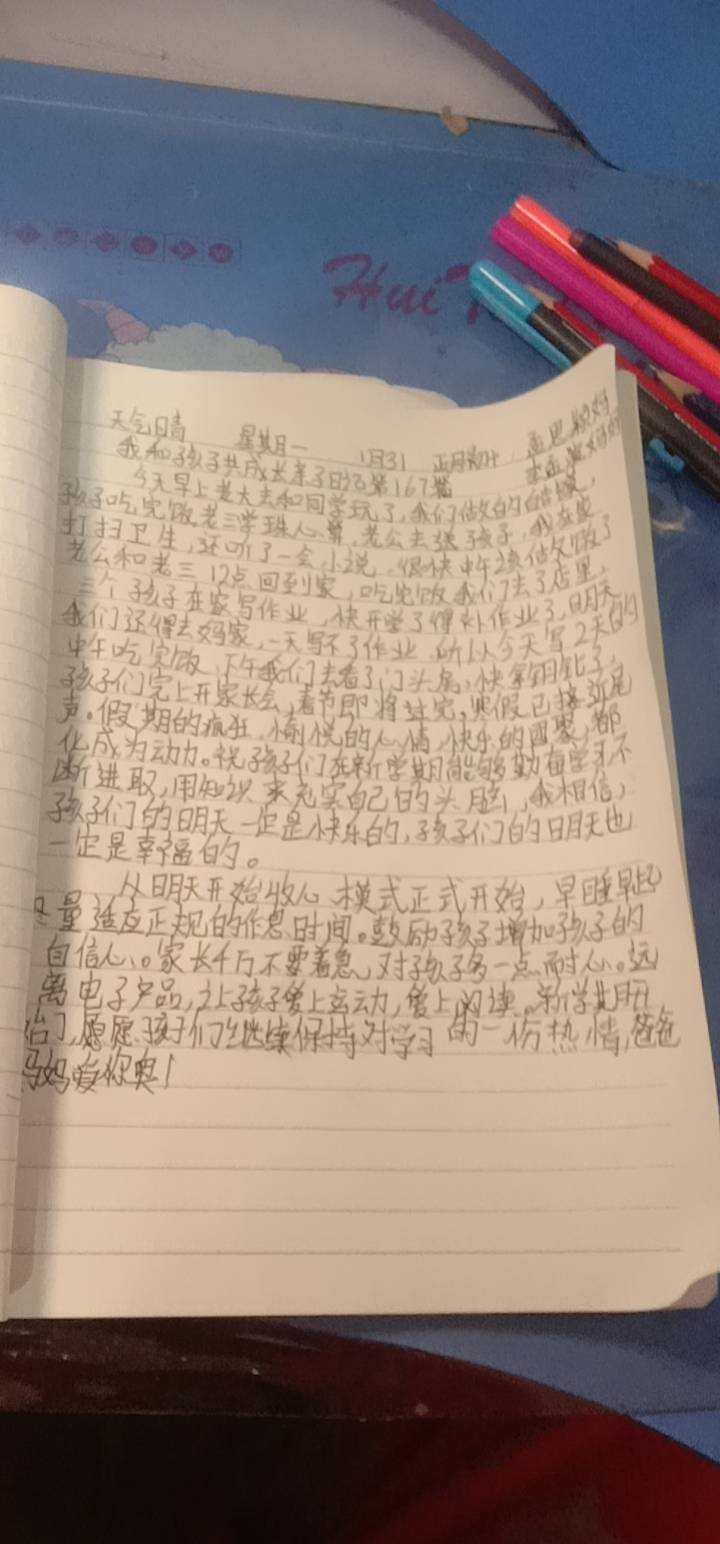 Hui
天气晴 星期一 1月31 正月初十
我和孩子共成长亲子日记第167篇
今天早上老大去和同学玩了,我们做的
孩子吃完饭老三学珠心算,老公去送孩子,我在家
打扫卫生,还听了一会小说,很快中午该做饭了
老公和老三12点回到家,吃完饭我们去了店里,
三个孩子在家写作业,快开学了得补作业了,明天
我们还得去妈家,一天写不了作业,所以今天写2天的
中午吃完饭,下午我们去看了门头房,快拿钥匙了,
孩子们完上开家长会,春节即将过完,寒假已接近尾
声。假期的疯狂,愉悦的心情,快乐的团聚,都
化成为动力。祝孩子们在新学期能够勤奋学习,不
断进取,用知识来充实自己的头脑,我相信,
孩子们的明天一定是快乐的,孩子们的明天也
一定是幸福的。
从明天开始收心模式正式开始,早睡早起
尽量适应正规的作息时间。鼓励孩子增加孩子的
自信心。家长千万不要着急,对孩子多一点耐心。远
离电子产品,让孩子爱上运动,爱上阅读。新学期开
始了,愿愿孩子们继续保持对学习的一份热情,爸爸
妈妈爱你奥!